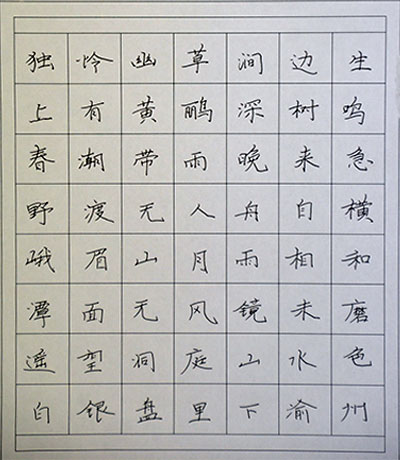 独怜幽草涧边生
上有黄鹂深树鸣
春潮带雨晚来急
野渡无人舟自横
峨眉山月雨相和
潭面无风镜未磨
遥望洞庭山水色
白银盘里下渝州